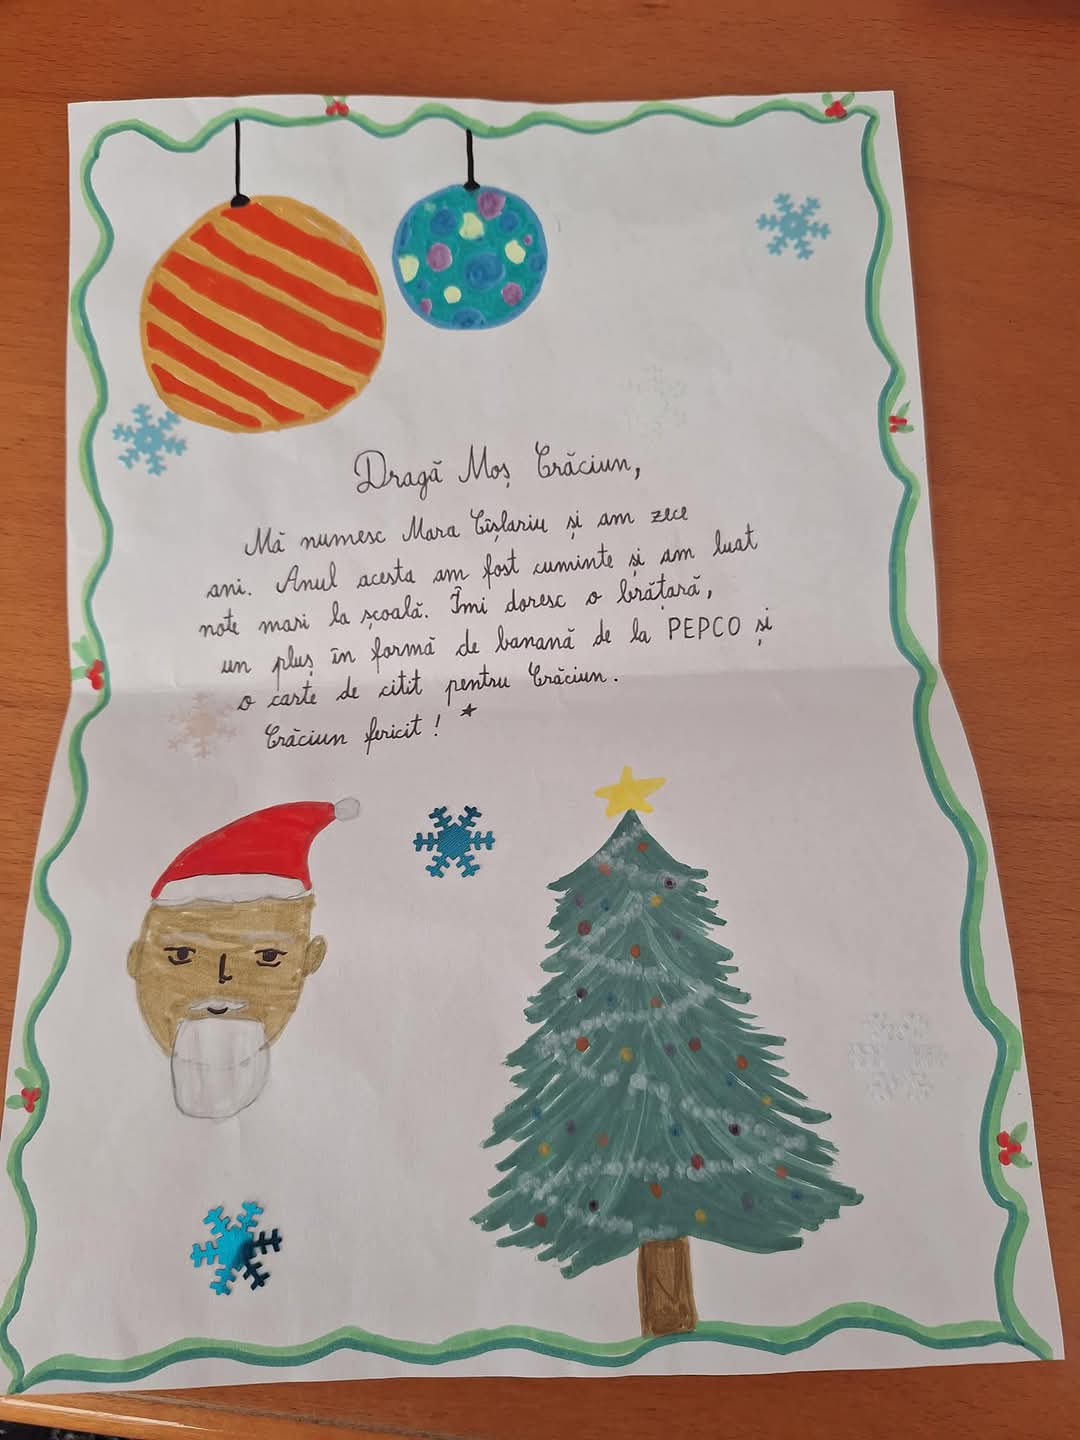 Dragă Moș Crăciun,
Mă numesc Mara Cîșlariu și am zece
ani. Anul acesta am fost cuminte și am luat
note mari la școală. Îmi doresc o brățară,
un pluș în formă de banană de la PEPCO și
o carte de citit pentru Crăciun.
Crăciun fericit!